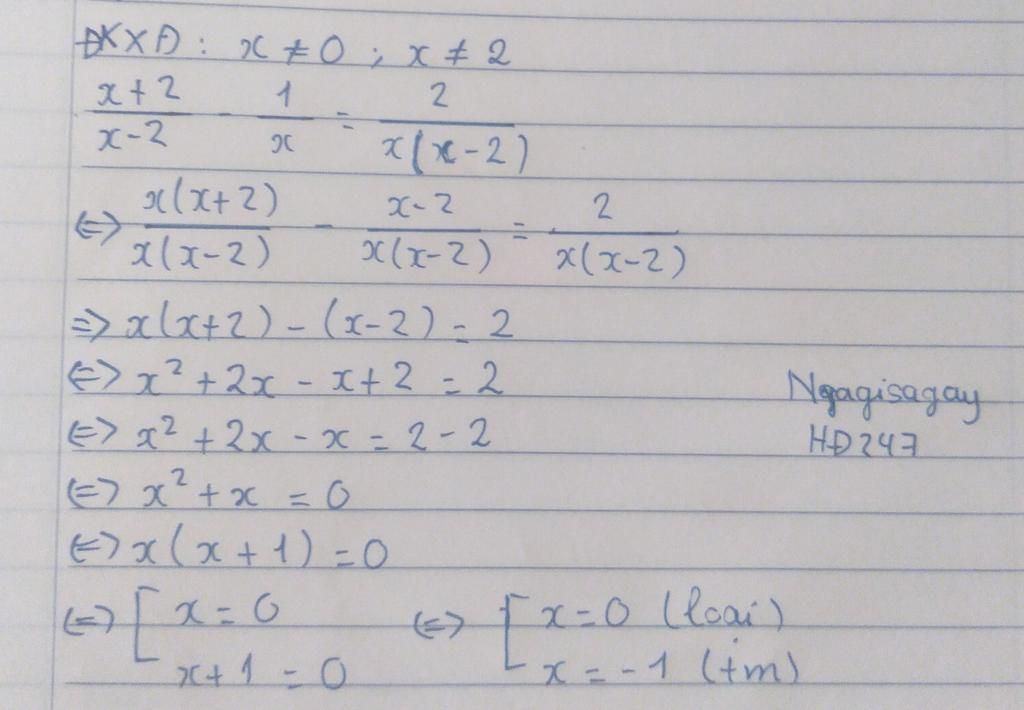 ĐKXĐ: x ≠ 0 ; x ≠ 2
(x+2)/(x-2) - 1/x = 2/(x(x-2))
⇔ (x(x+2))/(x(x-2)) - (x-2)/(x(x-2)) = 2/(x(x-2))
⇒ x(x+2) - (x-2) = 2
⇔ x² + 2x - x + 2 = 2
⇔ x² + 2x - x = 2 - 2
⇔ x² + x = 0
⇔ x(x+1) = 0
⇔ [ x = 0 ⇔ [ x = 0 (loại)
x+1 = 0 x = -1 (tm)
Ngagisagay
HĐ247